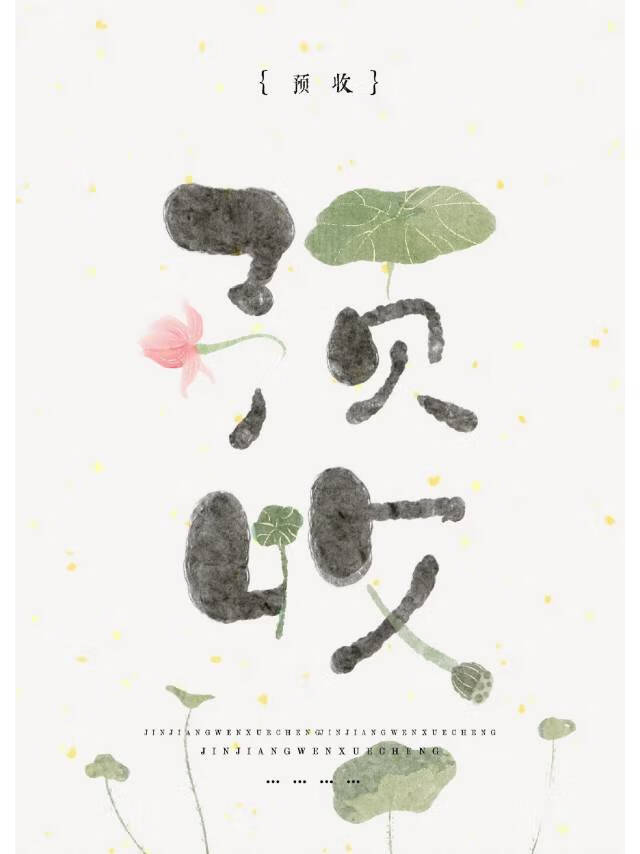 { 预 收 }
预
收
JINJIANGWENXUECHENGJINJIANGWENXUECHENG
JINJIANGWENXUECHENG
••• ••• ••• •••